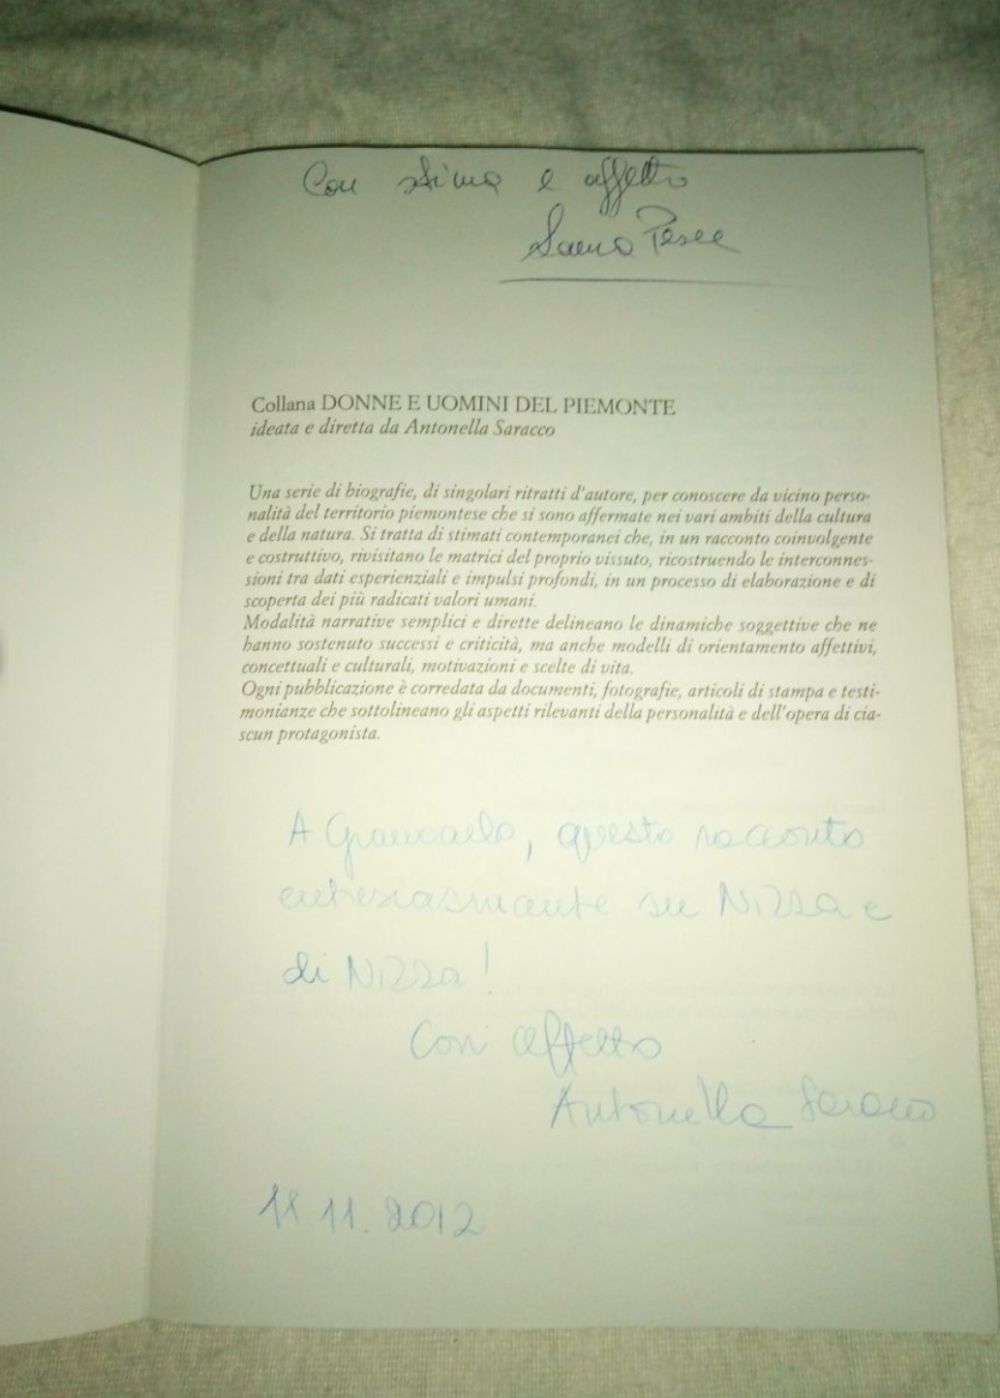 Con stima e affetto
Pesce
Collana DONNE E UOMINI DEL PIEMONTE
ideata e diretta da Antonella Saracco
Una serie di biografie, di singolari ritratti d'autore, per conoscere da vicino perso-
nalità del territorio piemontese che si sono affermate nei vari ambiti della cultura
e della natura. Si tratta di stimati contemporanei che, in un racconto coinvolgente
e costruttivo, rivisitano le matrici del proprio vissuto, ricostruendo le interconnes-
sioni tra dati esperienziali e impulsi profondi, in un processo di elaborazione e di
scoperta dei più radicati valori umani.
Modalità narrative semplici e dirette delineano le dinamiche soggettive che ne
hanno sostenuto successi e criticità, ma anche modelli di orientamento affettivi,
concettuali e culturali, motivazioni e scelte di vita.
Ogni pubblicazione è corredata da documenti, fotografie, articoli di stampa e testi-
monianze che sottolineano gli aspetti rilevanti della personalità e dell'opera di cia-
scun protagonista.
A Giancarlo, questo racconto
entusiasmante su Nizza e
di Nizza!
Con affetto
Antonella Saracco
11.2012